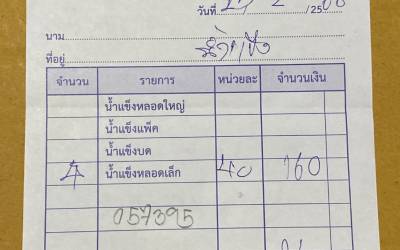 วันที่ /25
นาม
ที่อยู่
จำนวน รายการ หน่วยละ จำนวนเงิน
น้ำแข็งหลอดใหญ่
น้ำแข็งแพ็ค
น้ำแข็งบด
4 น้ำแข็งหลอดเล็ก 40 160
057395